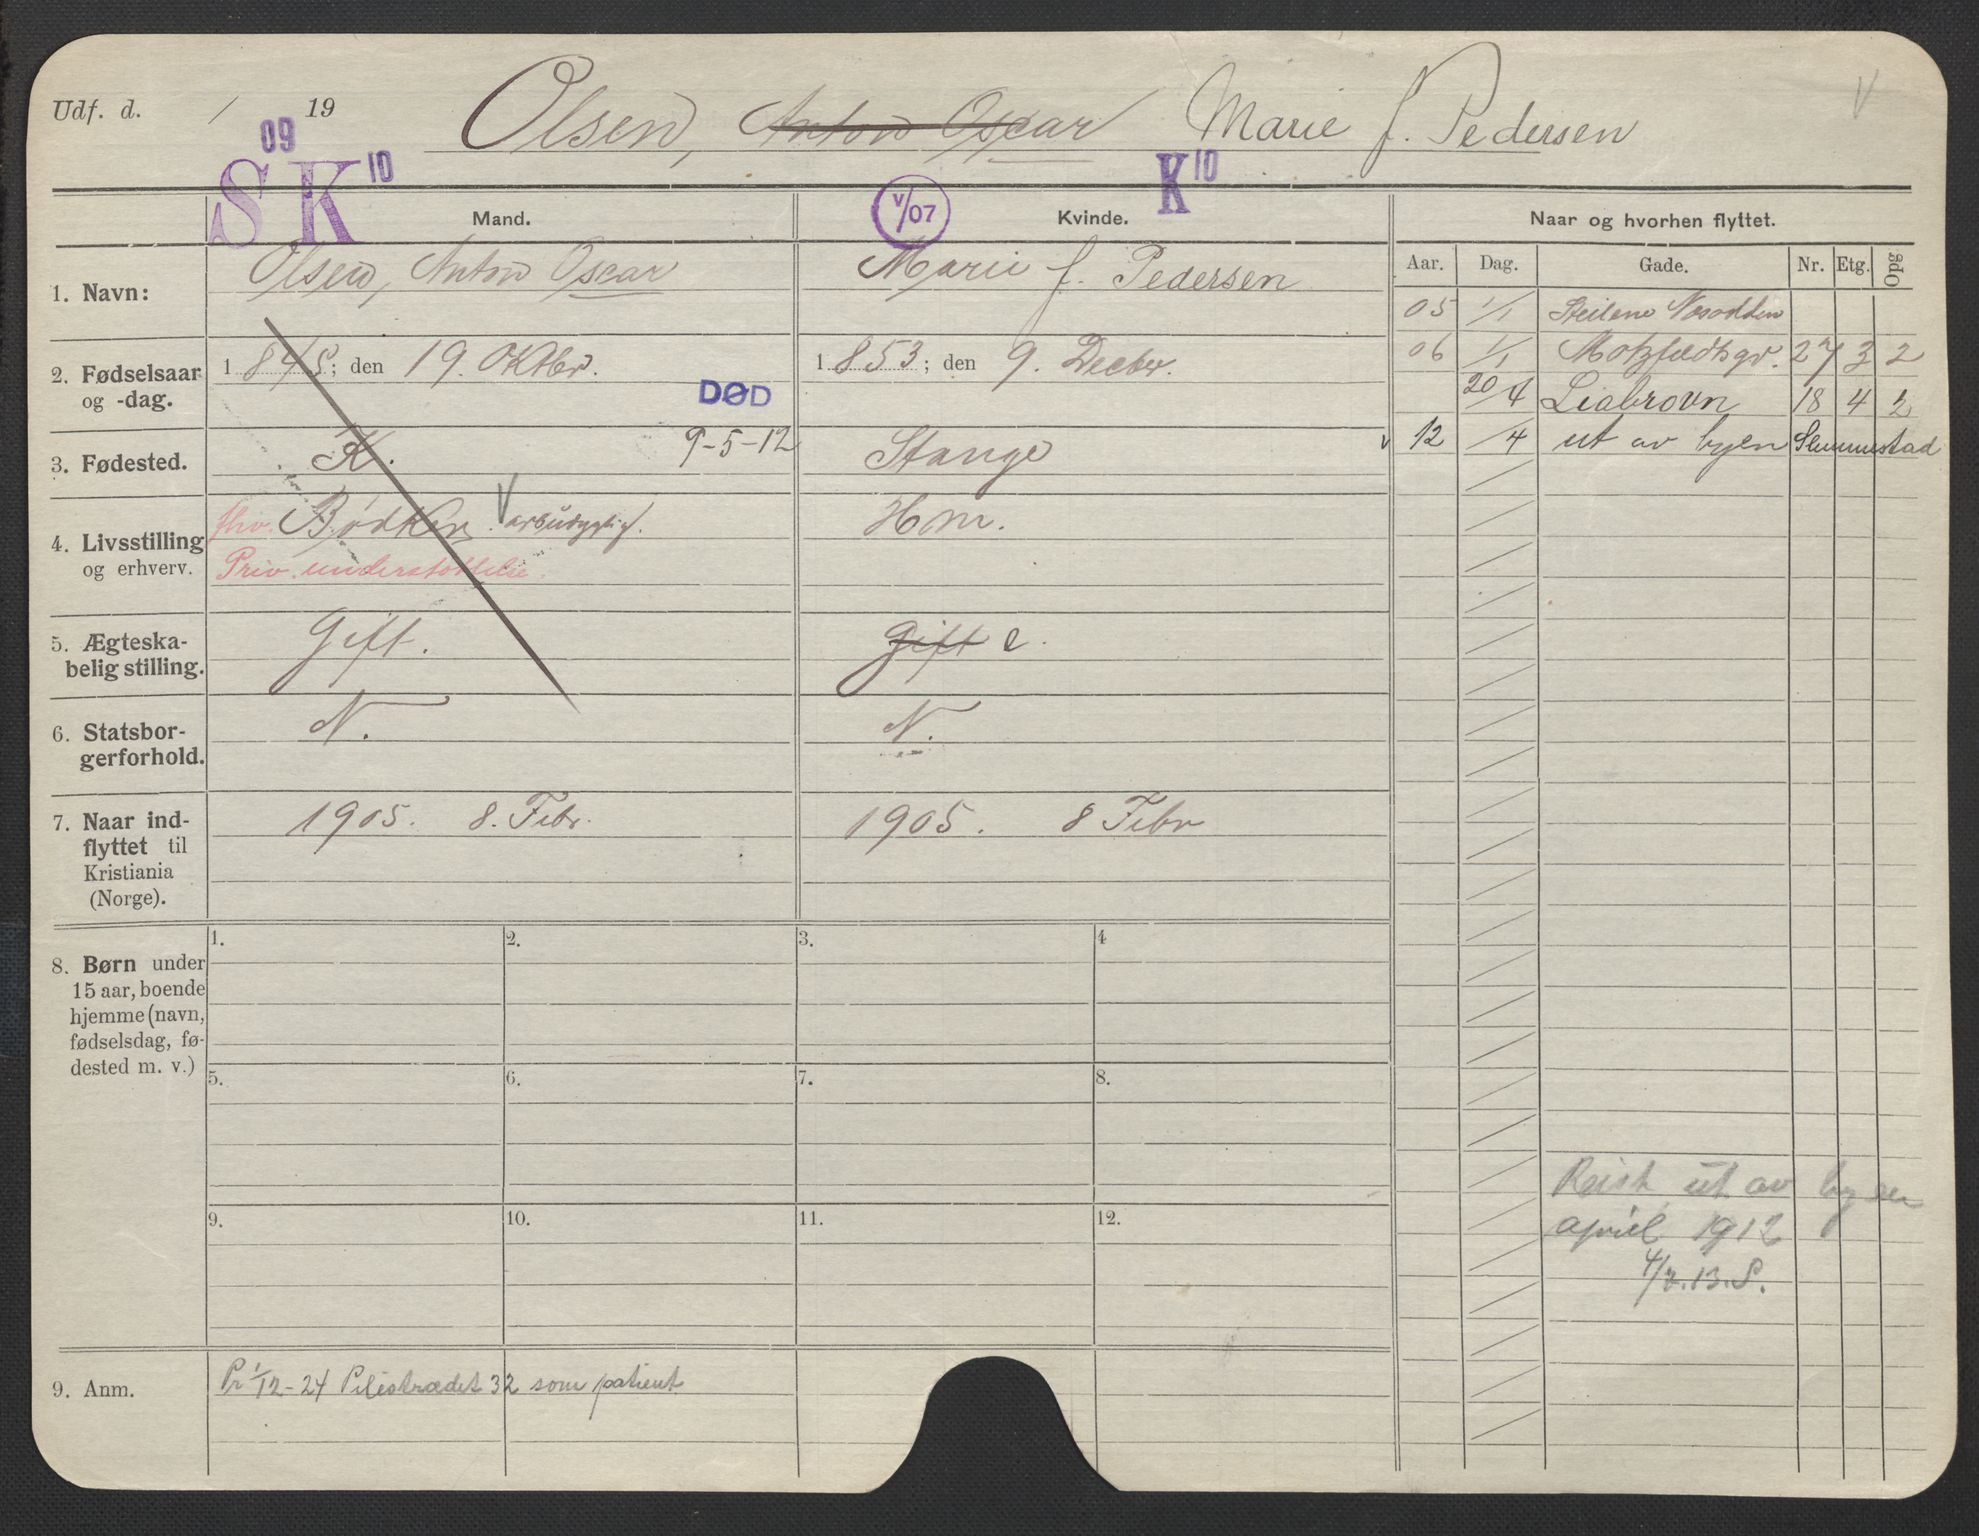 Udf. d. / 19
Olsen, Anton Oscar Marie f. Pedersen
V
09
S K 10
V/07
K 10
Mand.
Kvinde.
Naar og hvorhen flyttet.
Aar. Dag. Gade. Nr. Etg. Opg
1. Navn:
Olsen, Anton Oscar
Marie f. Pedersen
05 1/1 Steilene Nesodden
06 1/1 Motzfeldtsgt. 27 3 2
20/4 Liabrovn 18 4 2
v 12 /4 ut av byen Slemmestad
2. Fødselsaar
og -dag.
1845; den 19. Oktbr.
1853; den 9. Decbr.
DØD
9-5-12
3. Fødested.
K.
Stange
4. Livsstilling
og erhverv.
fhv. Bødker. V
Priv. understøttelse.
Hm.
5. Ægteska-
belig stilling.
Gift.
Gift e.
6. Statsbor-
gerforhold.
N.
N.
7. Naar ind-
flyttet til
Kristiania
(Norge).
1905. 8. Febr.
1905. 8 Febr
8. Børn under
15 aar, boende
hjemme (navn,
fødselsdag, fø-
dested m. v.)
1. 2. 3. 4
5. 6. 7. 8.
9. 10. 11. 12.
Reist ut av byen
april 1912
4/2.13.S.
9. Anm.
Pr 1/12-24 Pilestrædet 32 som patient